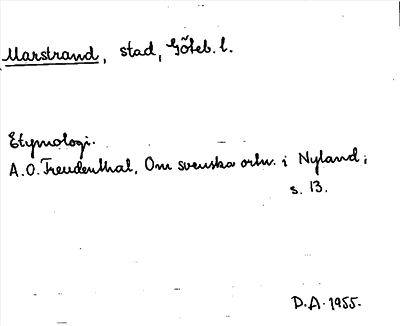 Marstrand, stad, Göteb. l.
Etymologi.
A.O. Freudenthal, Om svenska ortn. i Nyland;
s. 13.
D.A. 1955.